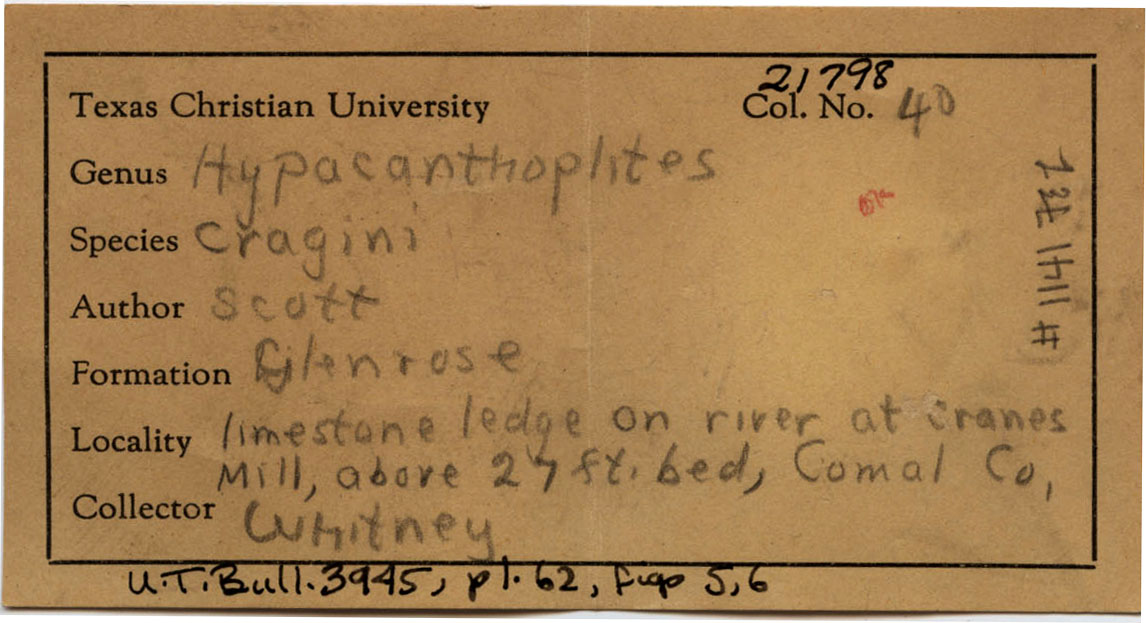 21798
Texas Christian University Col. No. 40
Genus Hypacanthoplites
Species Cragini
Author Scott
Formation Glenrose
Locality limestone ledge on river at Cranes
Mill, above 27 ft. bed, Comal Co,
Collector Whitney
U.T. Bull. 3945, pl. 62, figs 5,6